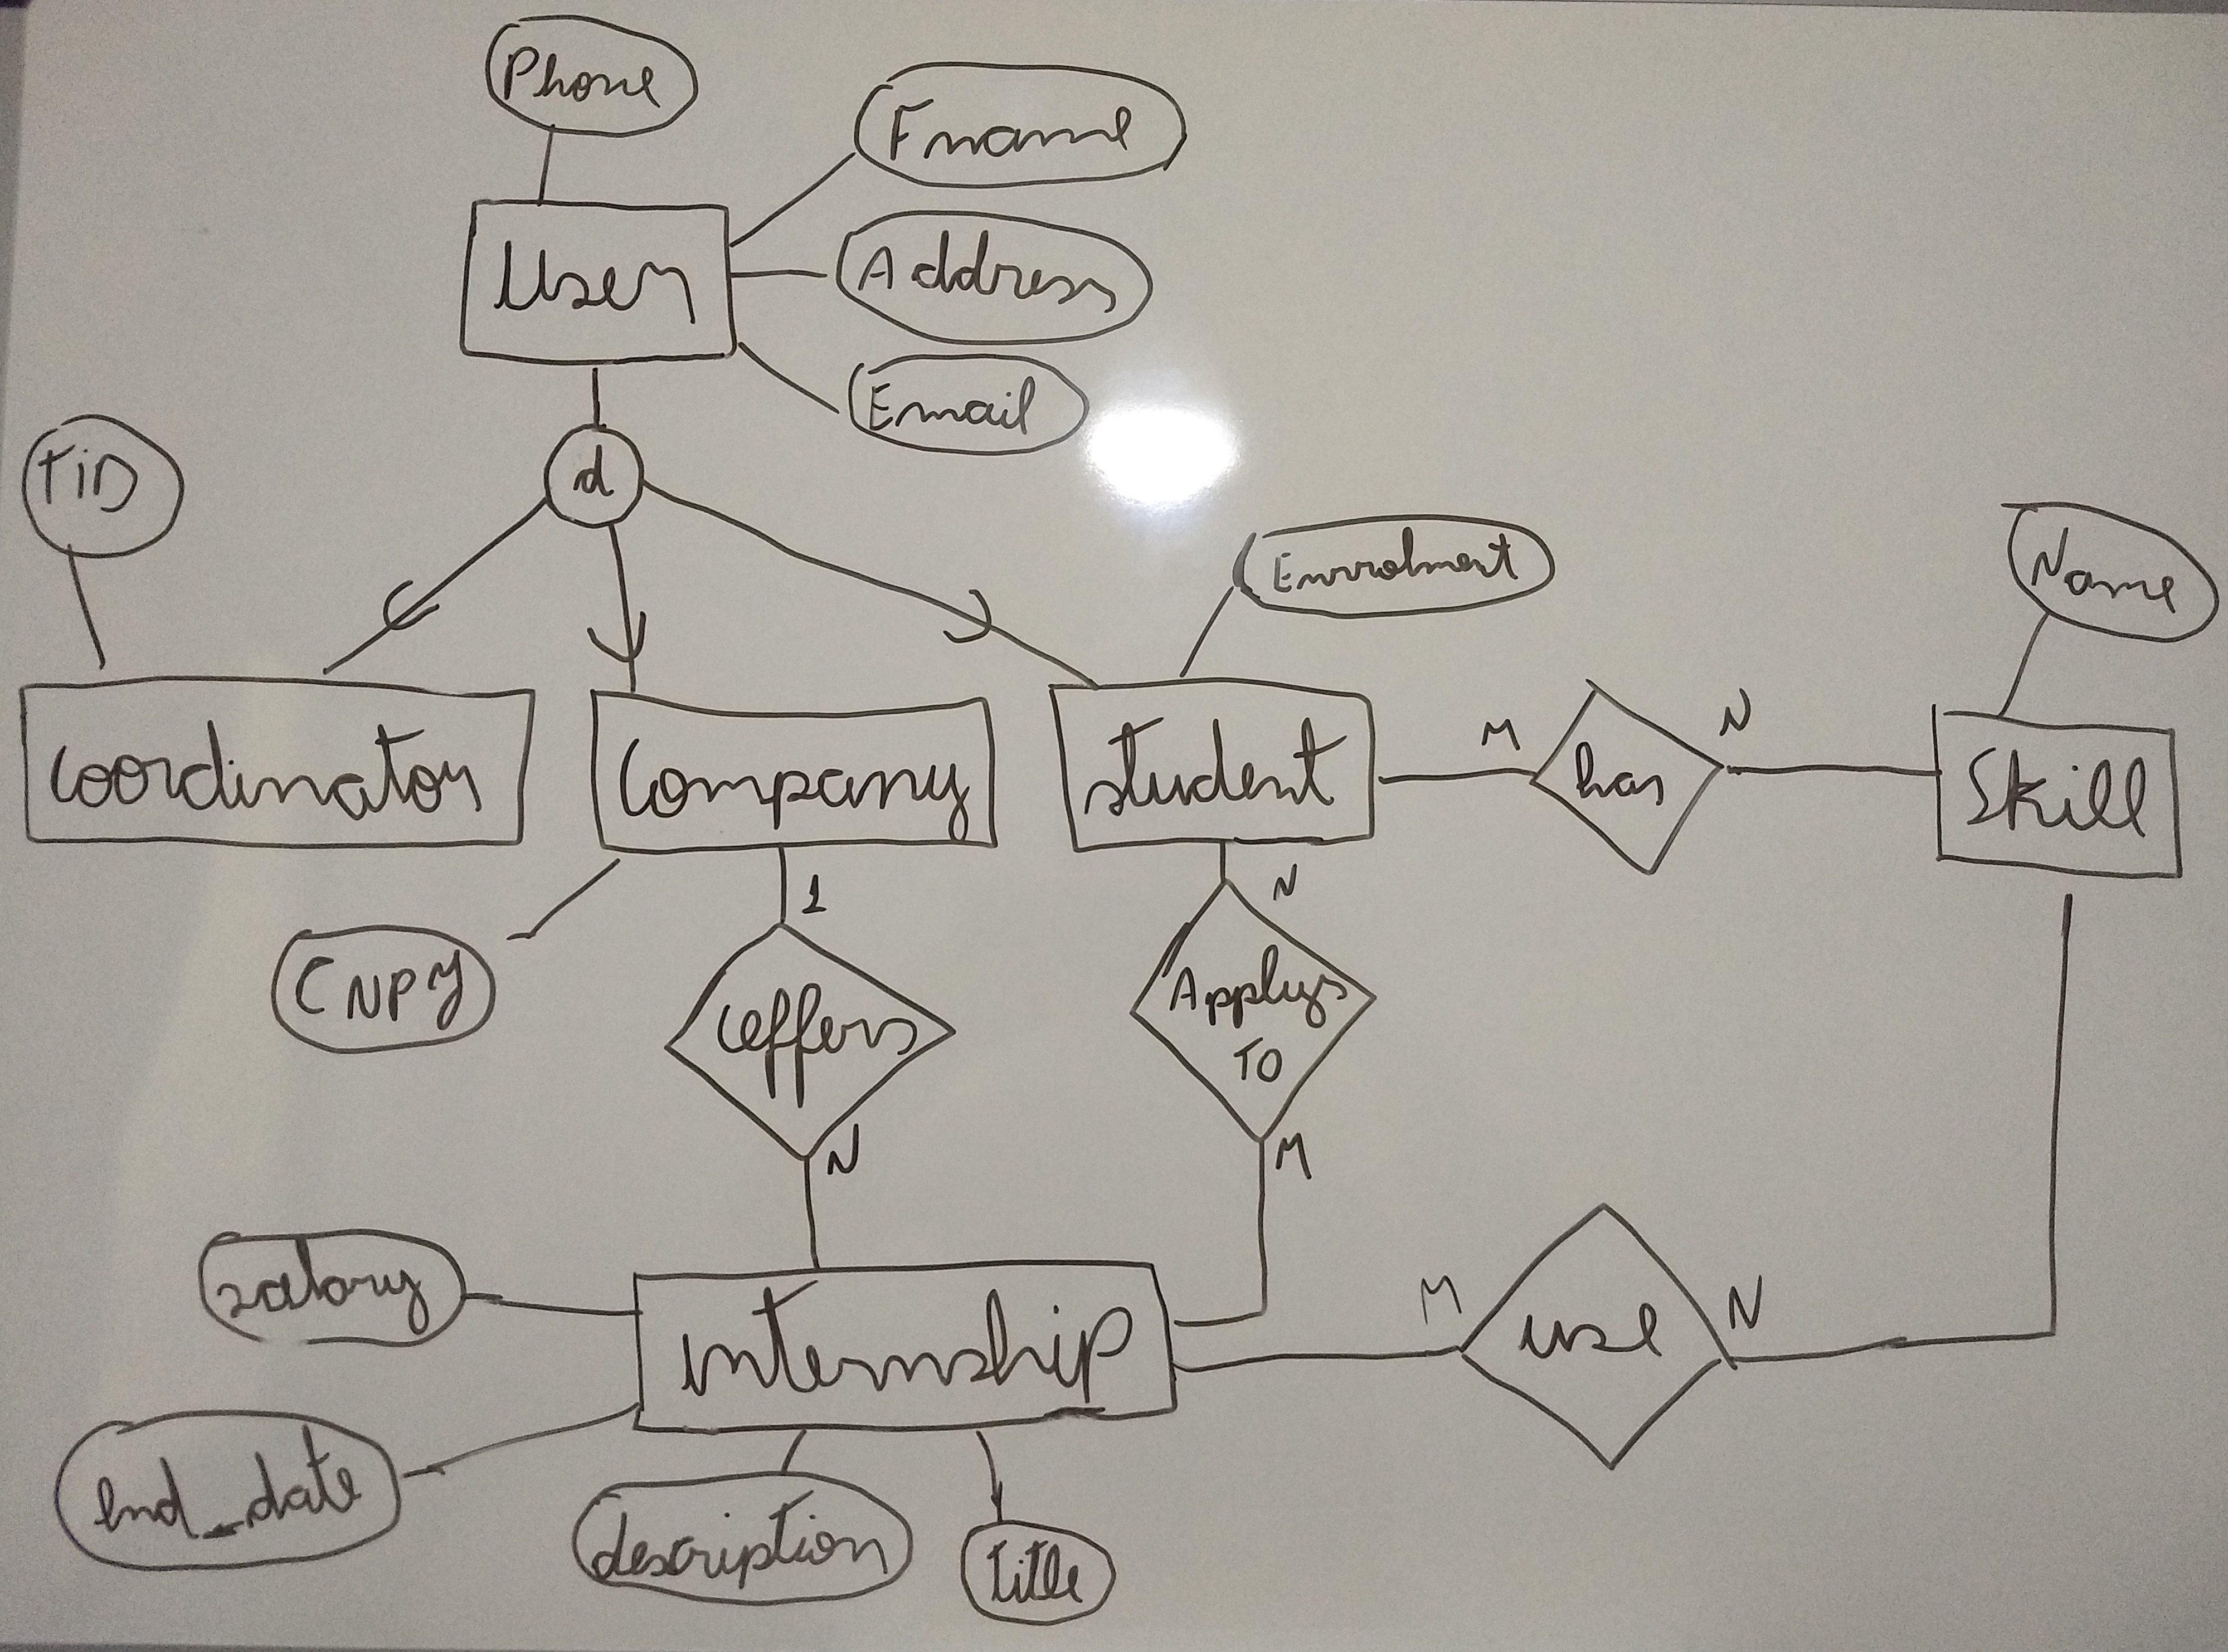 Phone
Fname
User
Address
Email
d
TiD
Enrrolment
Name
coordinator
Company
student
M
has
N
Skill
1
N
CNPJ
offers
Applys
TO
N
M
salary
internship
M
use
N
end_date
description
title